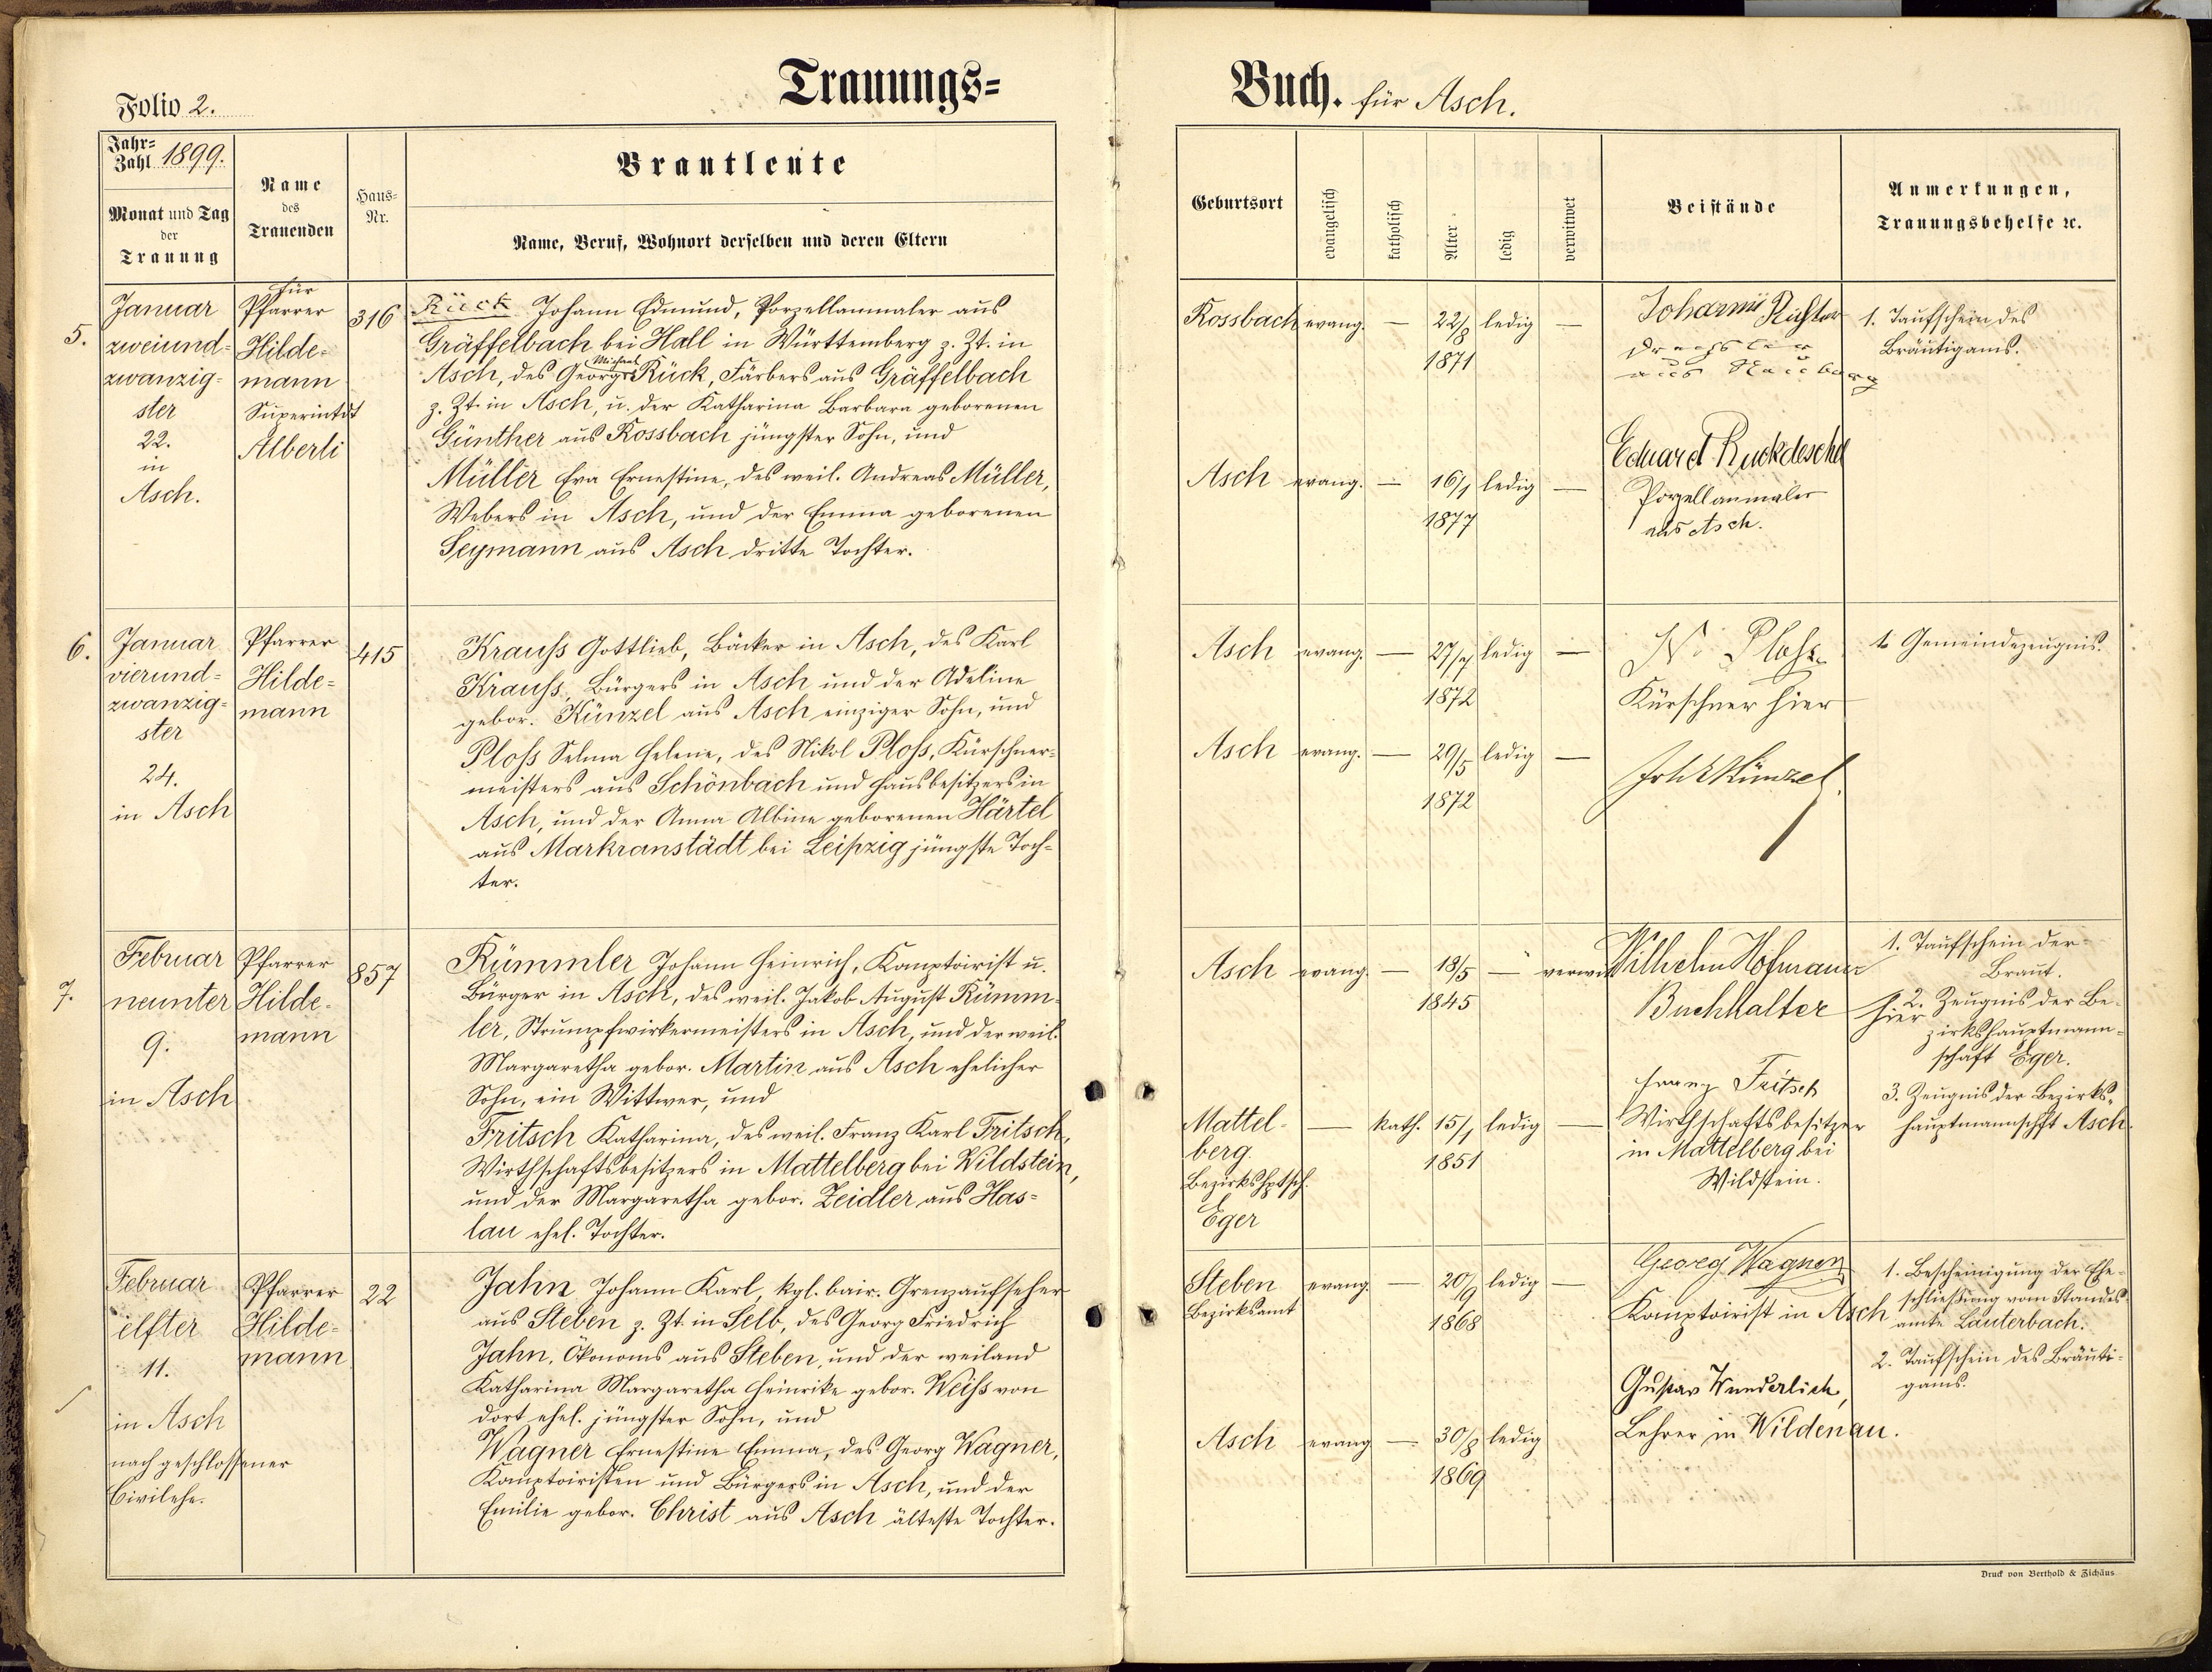 Trauungs=
Folio 2.
Jahr=
Zahl 1899.
Monat und Tag
der
Trauung
Name
des
Trauenden
Haus=
Nr.
Brautleute
Name, Beruf, Wohnort derselben und deren Eltern
5.
Januar
zweiund=
zwanzig=
ster
22.
in
Asch.
für
Pfarrer
Hilde=
mann
Superintdt
Alberti
316
Rück Johann Edmund, Porzellanmaler aus
Gräffelbach bei Hall in Württemberg z. Zt. in
Michael
Asch, des Georg Rück, Färbers aus Gräffelbach
z. Zt. in Asch, u. der Katharina Barbara geborenen
Günther aus Rossbach jüngster Sohn, und
Müller Eva Ernestine, des weil. Andreas Müller,
Webers in Asch, und der Emma geborenen
Seymann aus Asch dritte Tochter.
6.
Januar
vierund=
zwanzig=
ster
24.
in Asch
Pfarrer
Hilde=
mann
415
Krauß Gottlieb, Bäcker in Asch, des Karl
Krauß, Bürgers in Asch und der Adeline
gebor. Künzel aus Asch einziger Sohn, und
Ploß Selma Helene, des Nikol Ploß, Kürschner=
meisters aus Schönbach und Hausbesitzers in
Asch, und der Anna Albine geborenen Härtel
aus Markranstädt bei Leipzig jüngste Toch=
ter.
7.
Februar
neunter
9.
in Asch
Pfarrer
Hilde=
mann
857
Rümmler Johann Heinrich, Komptoirist u.
Bürger in Asch, des weil. Jakob August Rümm=
ler, Strumpfwirkermeisters in Asch, und der weil.
Margaretha gebor. Martin aus Asch ehelicher
Sohn, ein Wittwer, und
Fritsch Katharina, des weil. Franz Karl Fritsch,
Wirthschaftsbesitzers in Mattelberg bei Wildstein,
und der Margaretha gebor. Zeidler aus Has=
lau ehel. Tochter.
Februar
elfter
11.
in Asch
nach geschlossener
Civilehe.
Pfarrer
Hilde=
mann
22
Jahn Johann Karl, kgl. bair. Grenzaufseher
aus Steben z. Zt. in Selb, des Georg Friedrich
Jahn, Ökonoms aus Steben, und der weiland
Katharina Margaretha Heinrike gebor. Weiß von
dort ehel. jüngster Sohn, und
Wagner Ernestine Emma, des Georg Wagner,
Komptoiristen und Bürgers in Asch, und der
Emilie gebor. Christ aus Asch älteste Tochter.
Buch. für Asch.
Geburtsort
evangelisch
katholisch
Alter
ledig
verwitwet
Beistände
Anmerkungen,
Trauungsbehelfe ꝛc.
Rossbach evang. — 22/8 ledig —
1871
Johann Richter
Drechsler
aus
1. Taufschein des
Bräutigams.
Asch evang. — 16/1 ledig —
1877
Eduard Ruckdeschel
Porzellanmaler
aus Asch.
Asch evang. — 27/7 ledig —
1872
N. Ploß
Kürschner hier
1. Gemeindezeugnis.
Asch evang. — 29/5 ledig —
1872
Joh Künzel
Asch evang. — 18/5 — verwit
1845
Wilhelm Hofmann
Buchhalter hier
1. Taufschein der
Braut.
2. Zeugnis der Be=
zirkshauptmann=
schaft Eger.
3. Zeugnis der Bezirks=
hauptmannschft Asch.
Mattel=
berg
Bezirkshptsch.
Eger
— kath. 15/1 ledig —
1851
Franz Fritsch
Wirthschaftsbesitzer
in Mattelberg bei
Wildstein.
Steben evang. — 20/9 ledig —
Bezirksamt
1868
Georg Wagner
Komptoirist in Asch
1. Bescheinigung der Ehe=
schließung vom Standes=
amte Lauterbach.
2. Taufschein des Bräuti=
gams.
Asch evang. — 30/8 ledig
1869
Gustav Wunderlich,
Lehrer in Wildenau.
Druck von Berthold & Zichäus